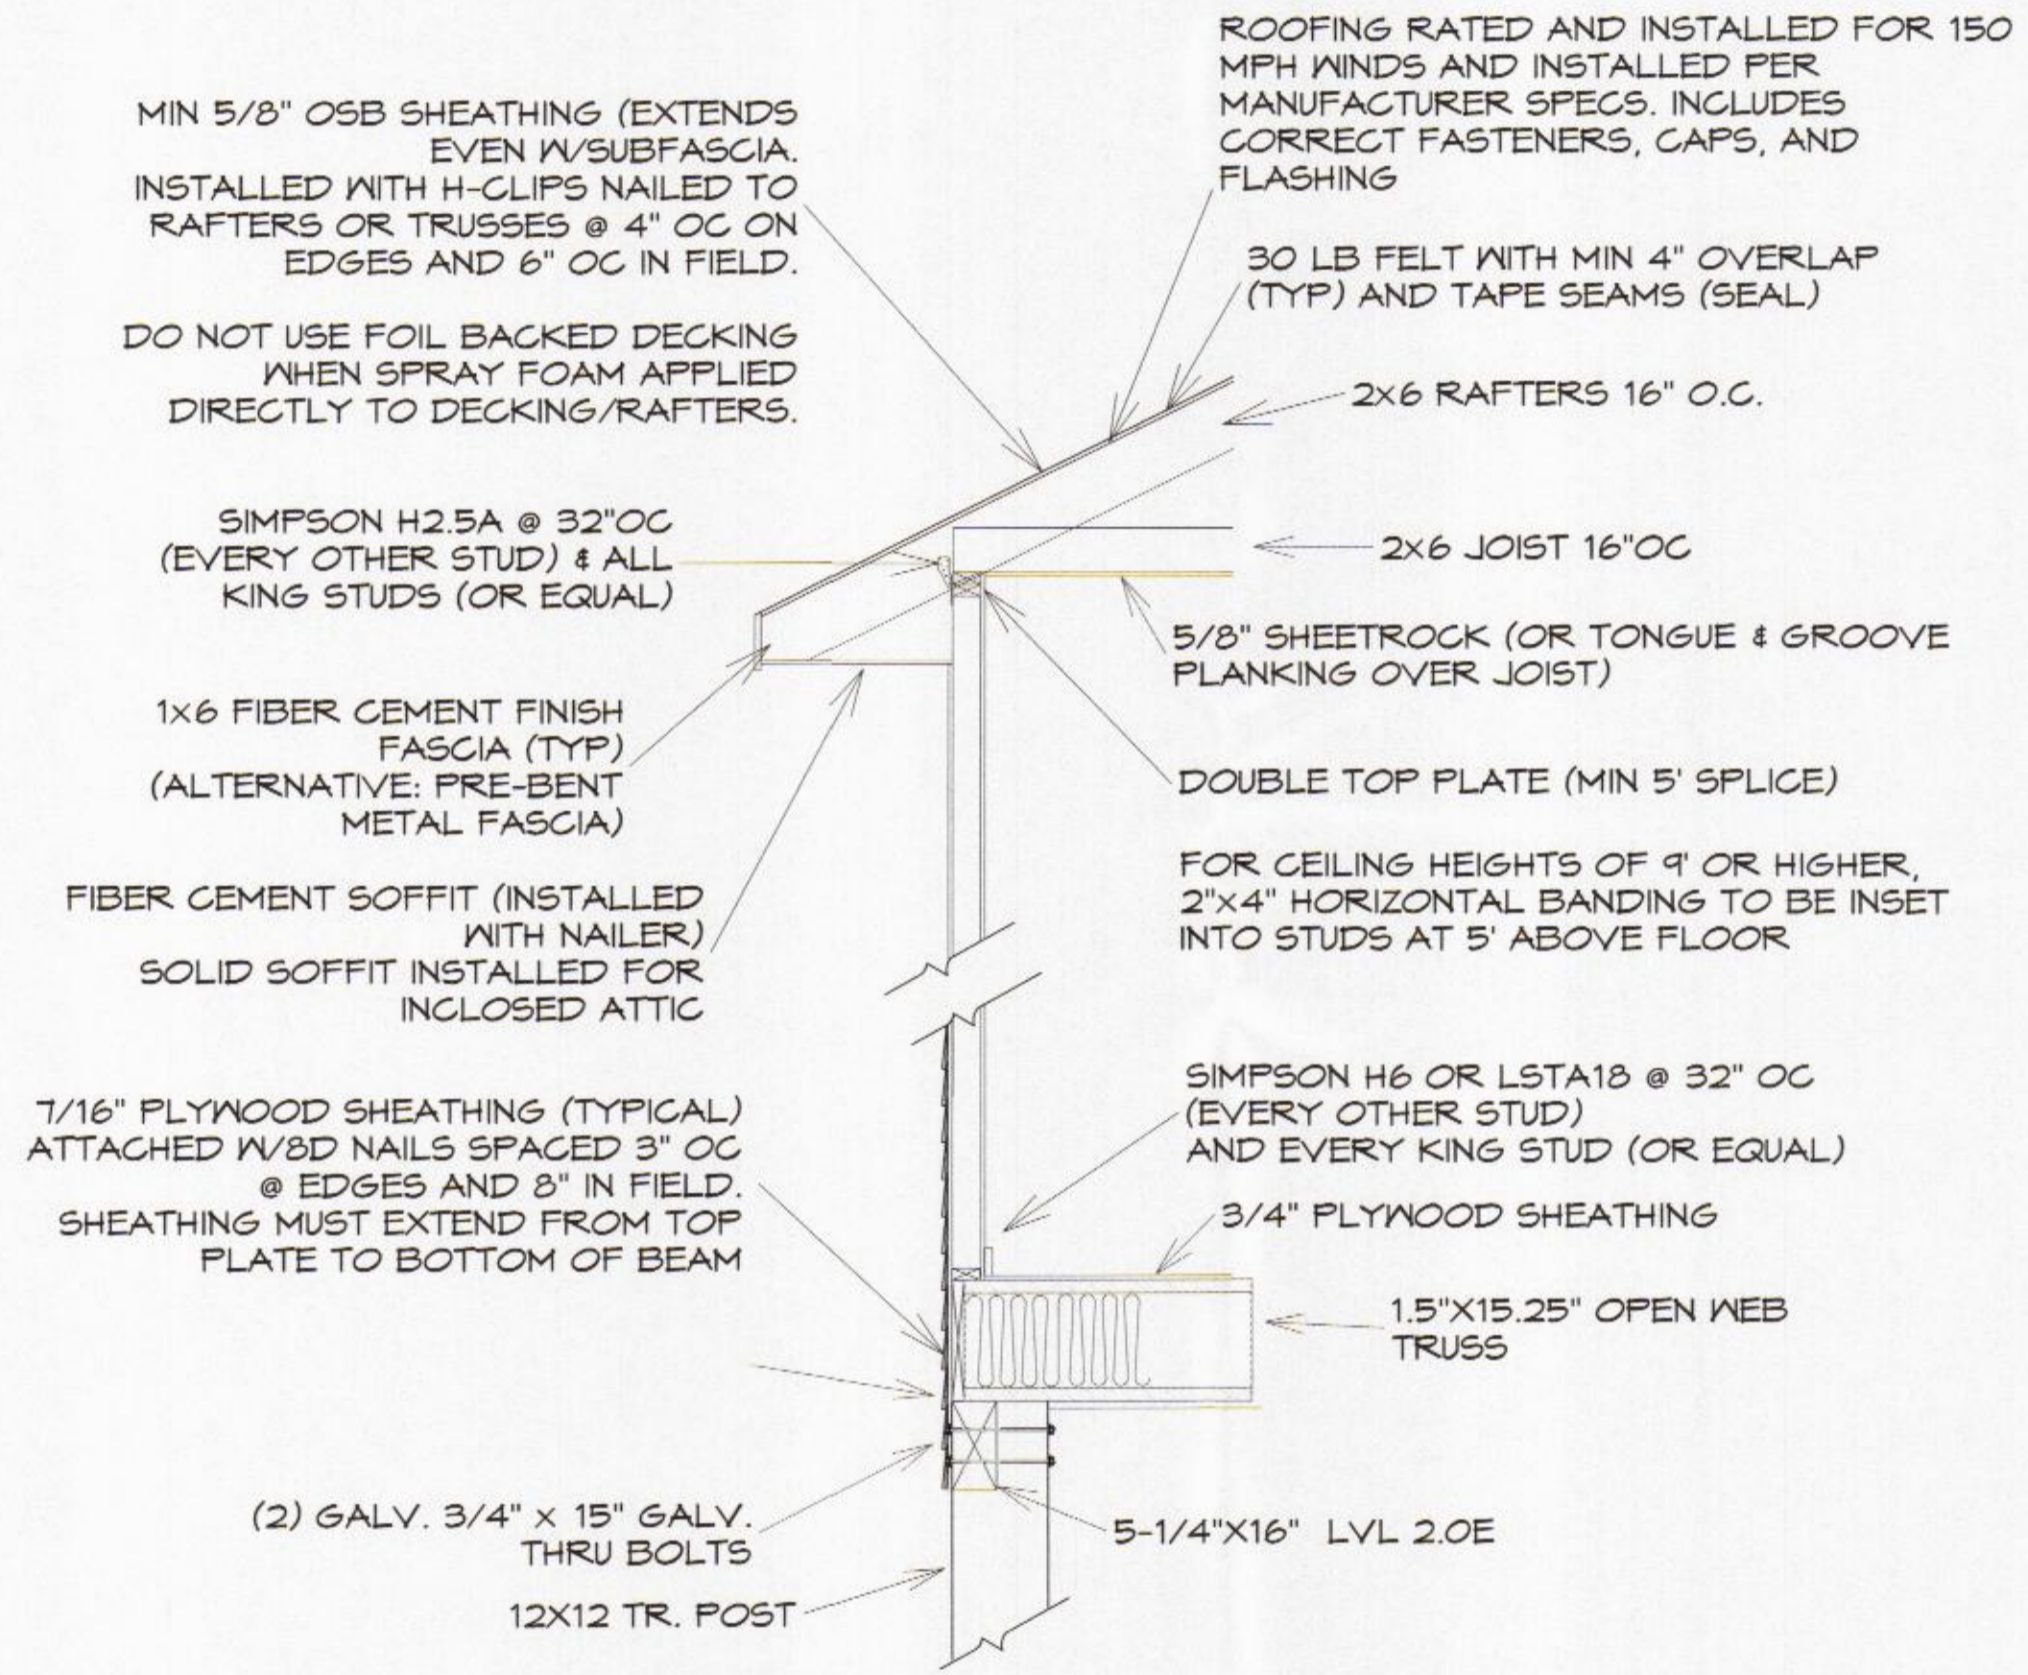 MIN 5/8" OSB SHEATHING (EXTENDS
EVEN W/SUBFASCIA.
INSTALLED WITH H-CLIPS NAILED TO
RAFTERS OR TRUSSES @ 4" OC ON
EDGES AND 6" OC IN FIELD.
DO NOT USE FOIL BACKED DECKING
WHEN SPRAY FOAM APPLIED
DIRECTLY TO DECKING/RAFTERS.
SIMPSON H2.5A @ 32"OC
(EVERY OTHER STUD) & ALL
KING STUDS (OR EQUAL)
1x6 FIBER CEMENT FINISH
FASCIA (TYP)
(ALTERNATIVE: PRE-BENT
METAL FASCIA)
FIBER CEMENT SOFFIT (INSTALLED
WITH NAILER)
SOLID SOFFIT INSTALLED FOR
INCLOSED ATTIC
7/16" PLYWOOD SHEATHING (TYPICAL)
ATTACHED W/8D NAILS SPACED 3" OC
@ EDGES AND 8" IN FIELD.
SHEATHING MUST EXTEND FROM TOP
PLATE TO BOTTOM OF BEAM
(2) GALV. 3/4" x 15" GALV.
THRU BOLTS
12X12 TR. POST
ROOFING RATED AND INSTALLED FOR 150
MPH WINDS AND INSTALLED PER
MANUFACTURER SPECS. INCLUDES
CORRECT FASTENERS, CAPS, AND
FLASHING
30 LB FELT WITH MIN 4" OVERLAP
(TYP) AND TAPE SEAMS (SEAL)
2x6 RAFTERS 16" O.C.
2x6 JOIST 16"OC
5/8" SHEETROCK (OR TONGUE & GROOVE
PLANKING OVER JOIST)
DOUBLE TOP PLATE (MIN 5' SPLICE)
FOR CEILING HEIGHTS OF 9' OR HIGHER,
2"x4" HORIZONTAL BANDING TO BE INSET
INTO STUDS AT 5' ABOVE FLOOR
SIMPSON H6 OR LSTA18 @ 32" OC
(EVERY OTHER STUD)
AND EVERY KING STUD (OR EQUAL)
3/4" PLYWOOD SHEATHING
1.5"X15.25" OPEN WEB
TRUSS
5-1/4"X16" LVL 2.0E